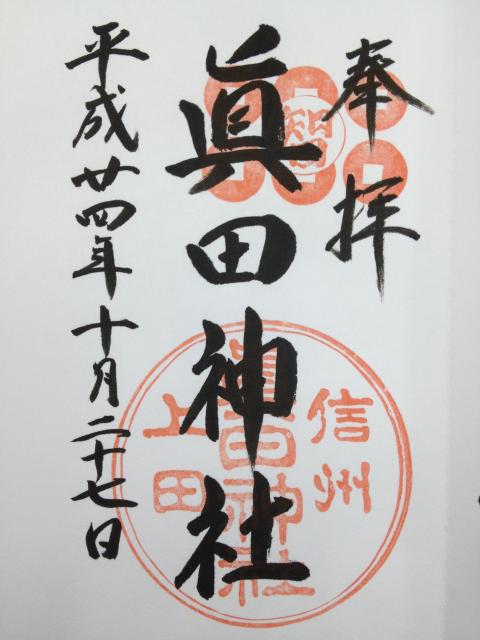 奉拝
智
眞田神社
信州
眞田神社
上田
平成廿四年十月二十七日